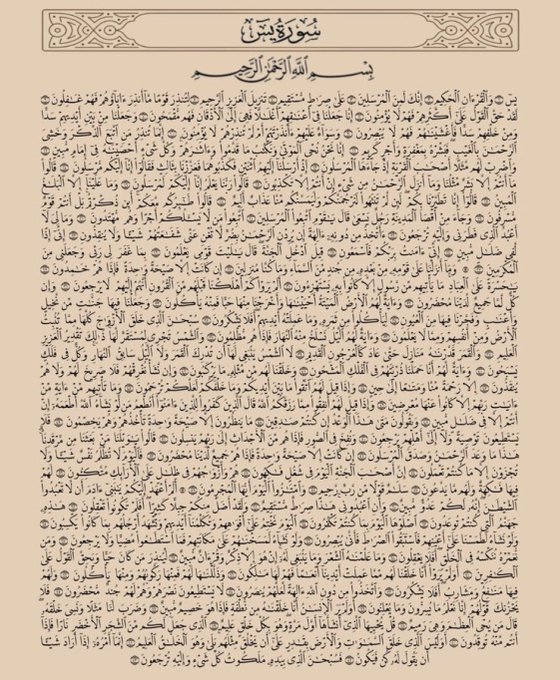 سورة يس
بسم الله الرحمن الرحيم
يس ۝ والقرءان الحكيم ۝ إنك لمن المرسلين ۝ على صرط مستقيم ۝ تنزيل العزيز الرحيم ۝ لتنذر قوما ما أنذر ءاباؤهم فهم غفلون ۝
لقد حق القول على أكثرهم فهم لا يؤمنون ۝ إنا جعلنا في أعنقهم أغللا فهي إلى الأذقان فهم مقمحون ۝ وجعلنا من بين أيديهم سدا
ومن خلفهم سدا فأغشينهم فهم لا يبصرون ۝ وسواء عليهم ءأنذرتهم أم لم تنذرهم لا يؤمنون ۝ إنما تنذر من اتبع الذكر وخشي
الرحمن بالغيب فبشره بمغفرة وأجر كريم ۝ إنا نحن نحي الموتى ونكتب ما قدموا وءاثرهم وكل شيء أحصينه في إمام مبين ۝
واضرب لهم مثلا أصحب القرية إذ جاءها المرسلون ۝ إذ أرسلنا إليهم اثنين فكذبوهما فعززنا بثالث فقالوا إنا إليكم مرسلون ۝ قالوا
ما أنتم إلا بشر مثلنا وما أنزل الرحمن من شيء إن أنتم إلا تكذبون ۝ قالوا ربنا يعلم إنا إليكم لمرسلون ۝ وما علينا إلا البلغ
المبين ۝ قالوا إنا تطيرنا بكم لئن لم تنتهوا لنرجمنكم وليمسنكم منا عذاب أليم ۝ قالوا طئركم معكم أئن ذكرتم بل أنتم قوم
مسرفون ۝ وجاء من أقصا المدينة رجل يسعى قال يقوم اتبعوا المرسلين ۝ اتبعوا من لا يسئلكم أجرا وهم مهتدون ۝ وما لي لا
أعبد الذي فطرني وإليه ترجعون ۝ ءأتخذ من دونه ءالهة إن يردن الرحمن بضر لا تغن عني شفعتهم شيئا ولا ينقذون ۝ إني إذا
لفي ضلل مبين ۝ إني ءامنت بربكم فاسمعون ۝ قيل ادخل الجنة قال يليت قومي يعلمون ۝ بما غفر لي ربي وجعلني من
المكرمين ۝ وما أنزلنا على قومه من بعده من جند من السماء وما كنا منزلين ۝ إن كانت إلا صيحة وحدة فإذا هم خمدون ۝
يحسرة على العباد ما يأتيهم من رسول إلا كانوا به يستهزءون ۝ ألم يروا كم أهلكنا قبلهم من القرون أنهم إليهم لا يرجعون ۝ وإن
كل لما جميع لدينا محضرون ۝ وءاية لهم الأرض الميتة أحيينها وأخرجنا منها حبا فمنه يأكلون ۝ وجعلنا فيها جنت من نخيل
وأعنب وفجرنا فيها من العيون ۝ ليأكلوا من ثمره وما عملته أيديهم أفلا يشكرون ۝ سبحن الذي خلق الأزوج كلها مما تنبت
الأرض ومن أنفسهم ومما لا يعلمون ۝ وءاية لهم اليل نسلخ منه النهار فإذا هم مظلمون ۝ والشمس تجري لمستقر لها ذلك تقدير العزيز
العليم ۝ والقمر قدرنه منازل حتى عاد كالعرجون القديم ۝ لا الشمس ينبغي لها أن تدرك القمر ولا اليل سابق النهار وكل في فلك
يسبحون ۝ وءاية لهم أنا حملنا ذريتهم في الفلك المشحون ۝ وخلقنا لهم من مثله ما يركبون ۝ وإن نشأ نغرقهم فلا صريخ لهم ولا هم
ينقذون ۝ إلا رحمة منا ومتعا إلى حين ۝ وإذا قيل لهم اتقوا ما بين أيديكم وما خلفكم لعلكم ترحمون ۝ وما تأتيهم من ءاية من
ءايت ربهم إلا كانوا عنها معرضين ۝ وإذا قيل لهم أنفقوا مما رزقكم الله قال الذين كفروا للذين ءامنوا أنطعم من لو يشاء الله أطعمه إن
أنتم إلا في ضلل مبين ۝ ويقولون متى هذا الوعد إن كنتم صدقين ۝ ما ينظرون إلا صيحة وحدة تأخذهم وهم يخصمون ۝ فلا
يستطيعون توصية ولا إلى أهلهم يرجعون ۝ ونفخ في الصور فإذا هم من الأجداث إلى ربهم ينسلون ۝ قالوا يويلنا من بعثنا من مرقدنا
هذا ما وعد الرحمن وصدق المرسلون ۝ إن كانت إلا صيحة وحدة فإذا هم جميع لدينا محضرون ۝ فاليوم لا تظلم نفس شيئا ولا
تجزون إلا ما كنتم تعملون ۝ إن أصحب الجنة اليوم في شغل فكهون ۝ هم وأزوجهم في ظلل على الأرائك متكئون ۝ لهم
فيها فكهة ولهم ما يدعون ۝ سلم قولا من رب رحيم ۝ وامتزوا اليوم أيها المجرمون ۝ ألم أعهد إليكم يبني ءادم أن لا تعبدوا
الشيطن إنه لكم عدو مبين ۝ وأن اعبدوني هذا صرط مستقيم ۝ ولقد أضل منكم جبلا كثيرا أفلم تكونوا تعقلون ۝ هذه
جهنم التي كنتم توعدون ۝ اصلوها اليوم بما كنتم تكفرون ۝ اليوم نختم على أفوههم وتكلمنا أيديهم وتشهد أرجلهم بما كانوا يكسبون ۝
ولو نشاء لطمسنا على أعينهم فاستبقوا الصرط فأنى يبصرون ۝ ولو نشاء لمسخنهم على مكانتهم فما استطعوا مضيا ولا يرجعون ۝ ومن
نعمره ننكسه في الخلق أفلا يعقلون ۝ وما علمنه الشعر وما ينبغي له إن هو إلا ذكر وقرءان مبين ۝ لينذر من كان حيا ويحق القول على
الكفرين ۝ أولم يروا أنا خلقنا لهم مما عملت أيدينا أنعما فهم لها ملكون ۝ وذللنها لهم فمنها ركوبهم ومنها يأكلون ۝ ولهم
فيها منفع ومشارب أفلا يشكرون ۝ واتخذوا من دون الله ءالهة لعلهم ينصرون ۝ لا يستطيعون نصرهم وهم لهم جند محضرون ۝ فلا
يحزنك قولهم إنا نعلم ما يسرون وما يعلنون ۝ أولم ير الإنسن أنا خلقنه من نطفة فإذا هو خصيم مبين ۝ وضرب لنا مثلا ونسي خلقه
قال من يحي العظم وهي رميم ۝ قل يحييها الذي أنشأها أول مرة وهو بكل خلق عليم ۝ الذي جعل لكم من الشجر الأخضر نارا فإذا
أنتم منه توقدون ۝ أوليس الذي خلق السموت والأرض بقدر على أن يخلق مثلهم بلى وهو الخلق العليم ۝ إنما أمره إذا أراد شيئا
أن يقول له كن فيكون ۝ فسبحن الذي بيده ملكوت كل شيء وإليه ترجعون ۝